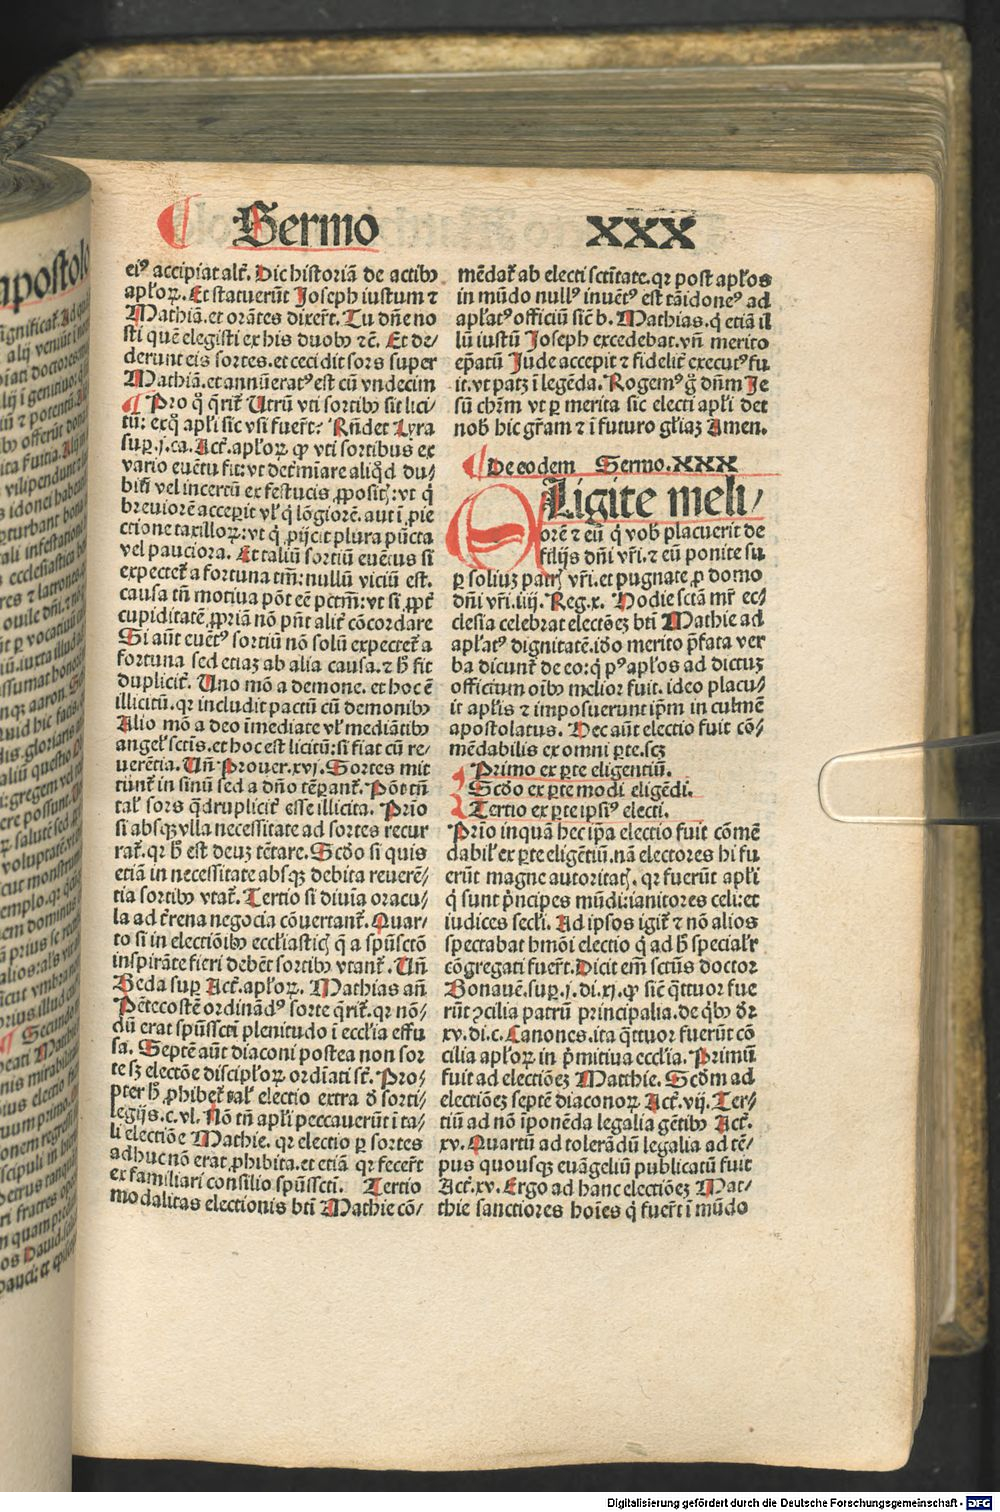 Sermo XXX
eiꝰ accipiat alt̃. Dic historiã de actibꝫ
apl̃oꝝ. Et statuerũt Joseph iustum ⁊
Mathiã. et orãtes dixer̃t. Tu dñe no
sti quẽ elegisti ex his duobꝫ ⁊c̃. Et de⸗
derunt eis sortes. et cecidit sors super
Mathiã. et annũeratꝰ est cũ vndecim
¶ Pro q̊ q̃rit̃ Utrũ vti sortibꝫ sit lici⸗
tũ: ex q̊ apl̃i sic vsi fuer̃t: Rñdet Lyra
sup̱. j. ca. Act̃. apl̃oꝝ ꝙ vti sortibus ex
vario euẽtu fit: vt determ̃iare aliq̊d du⸗
biũ vel incertũ ex festucis ꝓposit̃: vt q̊
breuiorẽ acceperit vl̃ q̊ lõgiorẽ. aut ĩ pie
ctione taxilloꝝ: vt q̊ pijcit plura pũcta
vel pauciora. Et taliũ sortiũ euẽtus si
expectet̃ a fortuna tm̃: nullũ viciũ est.
causa tñ motiua põt eẽ pctm̃: vt si ꝓpt̃
cupiditatẽ ꝓpriã nõ pñt alit̃ cõcordare
Si aũt euẽtꝰ sortiũ nõ solũ expectet̃ a
fortuna sed etiaꝫ ab alia causa. ⁊ h̃ fit
duplicit̃. Uno mõ a demone. et hoc ẽ
illicitũ. qꝛ includit pactũ cũ demonibꝫ
Alio mõ a deo ĩmediate vl̃ mediãtibꝫ
angel̃ sctĩs. et hoc est licitũ: si fiat cũ re⸗
uerẽtia. Uñ Prouer. xvj. Sortes mit
tũnt̃ in sinũ sed a dño tẽperant̃. Põt tñ
tal̃ sors q̃druplicit̃ esse illicita. Primo
si absqꝫ vlla necessitate ad sortes recur
rat̃. qꝛ h̃ est deuꝫ tẽtare. Scdo si quis
etiã in necessitate absqꝫ debita reuerẽ⸗
tia sortibꝫ vtat̃. Tertio si diuĩa oracu⸗
la ad t̃rena negocia cõuertant̃. Quar⸗
to si in electiõibꝫ eccl̃iastic̃ q̃ a spũsctõ
inspirãte fieri debẽt sortibꝫ vtant̃. Uñ
Beda sup̱ Act̃. apl̃oꝝ. Mathias añ
Pẽtecostẽ ordinãdꝰ sorte q̃rit̃. qꝛ nõ⸗
dũ erat spũsscti plenitudo ĩ eccl̃ia effu
sa. Septẽ aũt diaconi postea non sor
te sꝫ electõe discipl̃oꝝ ordĩati st̃. Pro⸗
pter h̃ ꝓhibet̃ tal̃ electio extra ð sorti⸗
legijs. c. vl. Nõ tñ apl̃i peccauerũt ĩ ta⸗
li electiõe Mathie. qꝛ electio p̱ sortes
adhuc nõ erat ꝓhibita. et etiã qꝛ fecer̃t
ex familiari consilio spũsscti. Tertio
modalitas electionis bt̃i Mathie cõ⸗
mẽdat̃ ab electi sctĩtate. qꝛ post apl̃os
in mũdo nullꝰ inuẽtꝰ est tã idoneꝰ ad
apl̃atꝰ officiũ sic̃ b. Mathias. q̊ etiã il
lũ iustũ Joseph excedebat. vñ merito
ep̃atũ Jude accepit ⁊ fidelit̃ executꝰ fu
it. vt patꝫ ĩ legẽda. Rogemꝰ g̃ dñm Je
sũ chr̃m vt p̱ merita sic electi apl̃i det
nob̃ hic gr̃am ⁊ ĩ futuro gl̃iaꝫ Amen.
¶ De eodem Sermo. XXX
ELigite meli⸗
orẽ ⁊ eũ q̊ vob̃ placuerit de
filijs dñi vr̃i. ⁊ eũ ponite su
p̱ soliuꝫ patr̃ vr̃i. et pugnate ꝓ domo
dñi vr̃i. iiij. Reg. x. Hodie sctã mr̃ ec⸗
clesia celebrat electõeꝫ bt̃i Mathie ad
apl̃atꝰ dignitatẽ. iðo merito p̃fata ver
ba dicunt̃ de eo: q̊ pꝰ apl̃os ad dictuꝫ
officium oĩbꝫ melior fuit. ideo placu⸗
it apl̃is ⁊ imposuerunt ip̃m in culmẽ
apostolatus. Hec aũt electio fuit cõ⸗
mẽdabilis ex omni p̱te. scꝫ
Primo ex p̱te eligentiũ.
Scðo ex p̱te modi eligẽdi.
Tertio ex p̱te ipsiꝰ electi.
Prĩo inquã hec ip̃a electio fuit cõmẽ
dabil̃ ex p̱te eligẽtiũ. nã electores hi fu
erũt magne autoritat̃. qꝛ fuerũt apl̃i
q̊ sunt p̃ncipes mũdi: ianitores celi: et
iudices secl̃i. Ad ipsos igit̃ ⁊ nõ alios
spectabat hmõi electio q̊ ad h̃ special̃r
cõgregati fuer̃t. Dicit em̃ sctũs doctor
Bonauẽ. sup̱. j. di. xj. ꝙ sic̃ q̃ttuor fue
rũt ↄcilia patrũ principalia. de q̊bꝫ ðꝛ
xv. di. c. Canones. ita q̃ttuor fuerũt cõ
cilia apl̃oꝝ in p̃mitiua eccl̃ia. Primũ
fuit ad electiõeꝫ Matthie. Scðm ad
electiõeꝫ septẽ diaconoꝝ Act̃. vij. Ter⸗
tiũ ad nõ ĩponẽda legalia gẽtibꝫ Act̃.
xv. Quartũ ad tolerãdũ legalia ad tẽ⸗
pus quousqꝫ euãgeliũ publicatũ fuit
Act̃. xv. Ergo ad hanc electiõeꝫ Mat⸗
thie sanctiores hoĩes q̊ fuer̃t ĩ mũdo
Digitalisierung gefördert durch die Deutsche Forschungsgemeinschaft - DFG